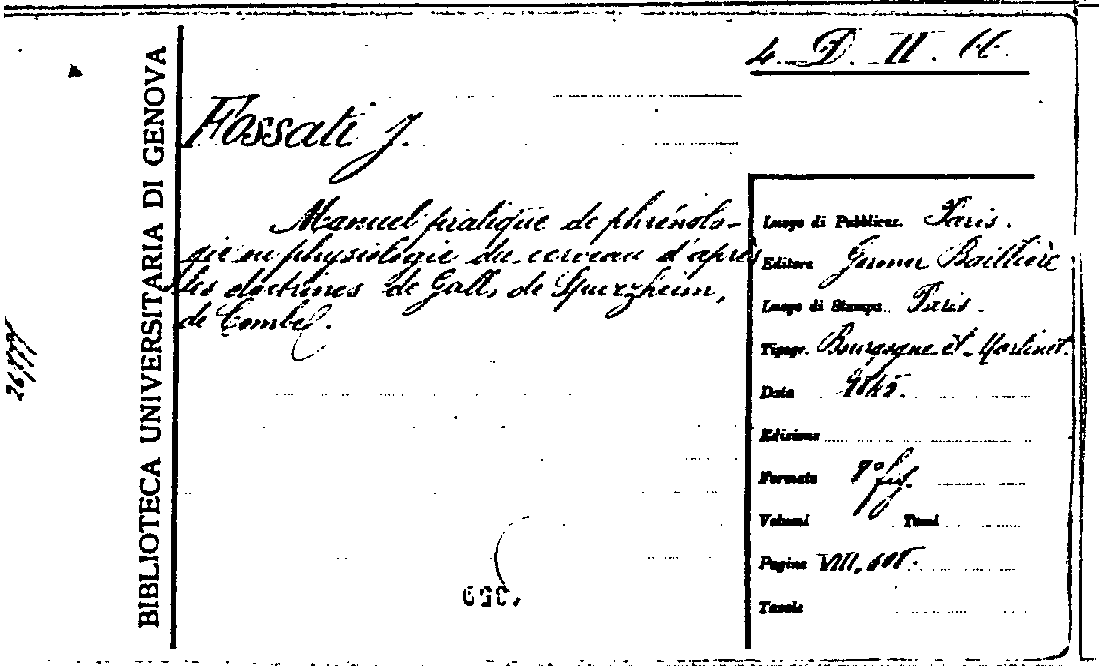 4. D. II. 66.
BIBLIOTECA UNIVERSITARIA DI GENOVA
Fossati J.
Manuel pratique de phrénolo-
gie ou physiologie du cerveau d'après
les doctrines de Gall, de Spurzheim,
de Combe.
Luogo di Pubblicaz. Paris.
Editore Germer Baillière
Luogo di Stampa. Paris.
Tipogr. Bourgogne et Martinet.
Data 1845.
Edizione
Formato fig.
Volumi Tomi
Pagine VIII,
Tavole